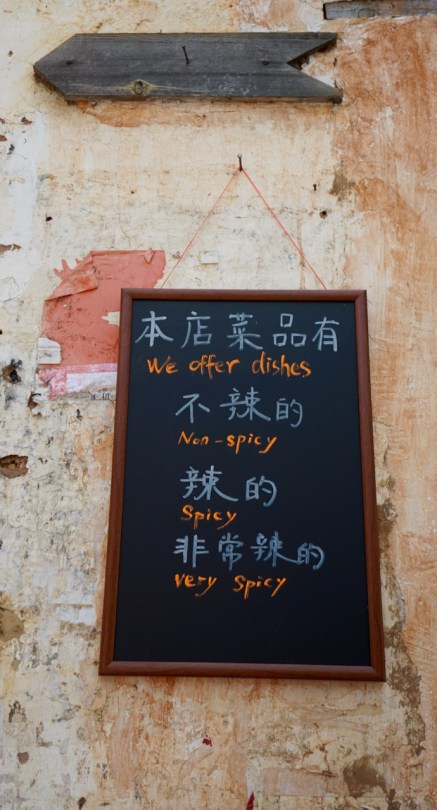 本店菜品有
We offer dishes
不辣的
Non-spicy
辣的
Spicy
非常辣的
very spicy